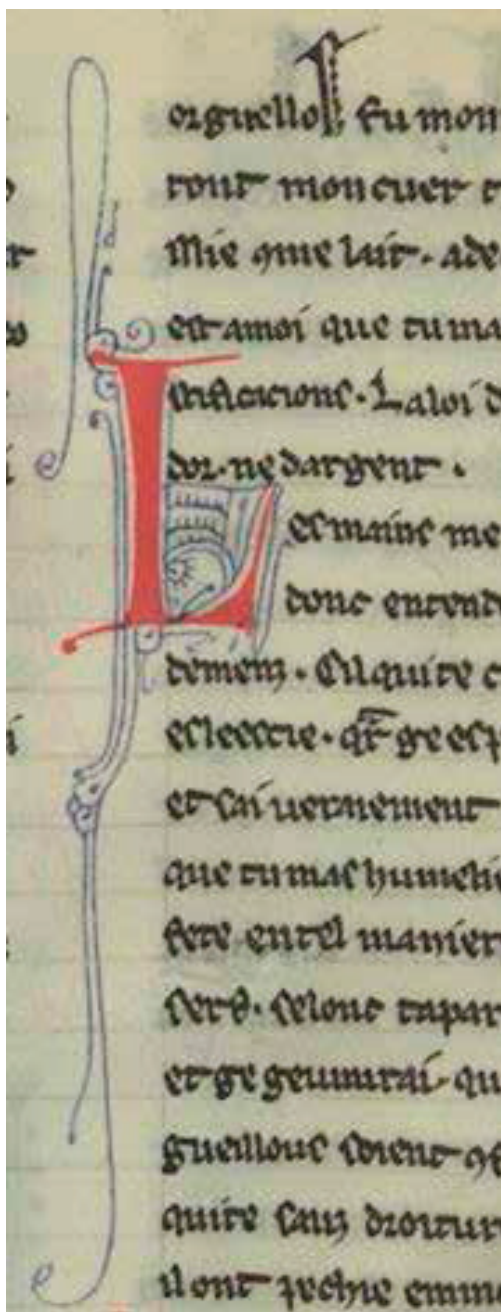 orguelloſ fu mon
tout mon cuer
Mie ꝯme lait. ade
est a moi que tu ma
tificacions. La loi d
dor. ne dargent.
Les mains me
donc entend
demenz. Cil qui te c
esleescie. qr̄ ge esp
et sai veraiement
que tu mas humelie
fete en tel manier
sers. selonc ta par
et ge geuiurai. qu
gueillous soient ꝯf
qui te sanz droitur
il ont pechie enmi